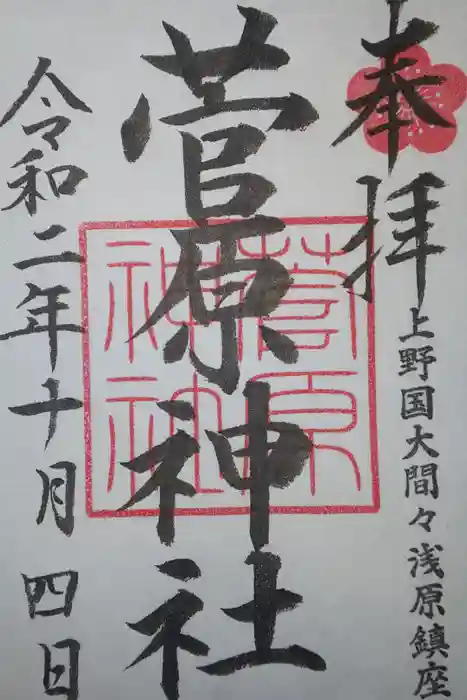 奉拝
上野国大間々浅原鎮座
菅原神社
菅原
神社
令和二年十月四日